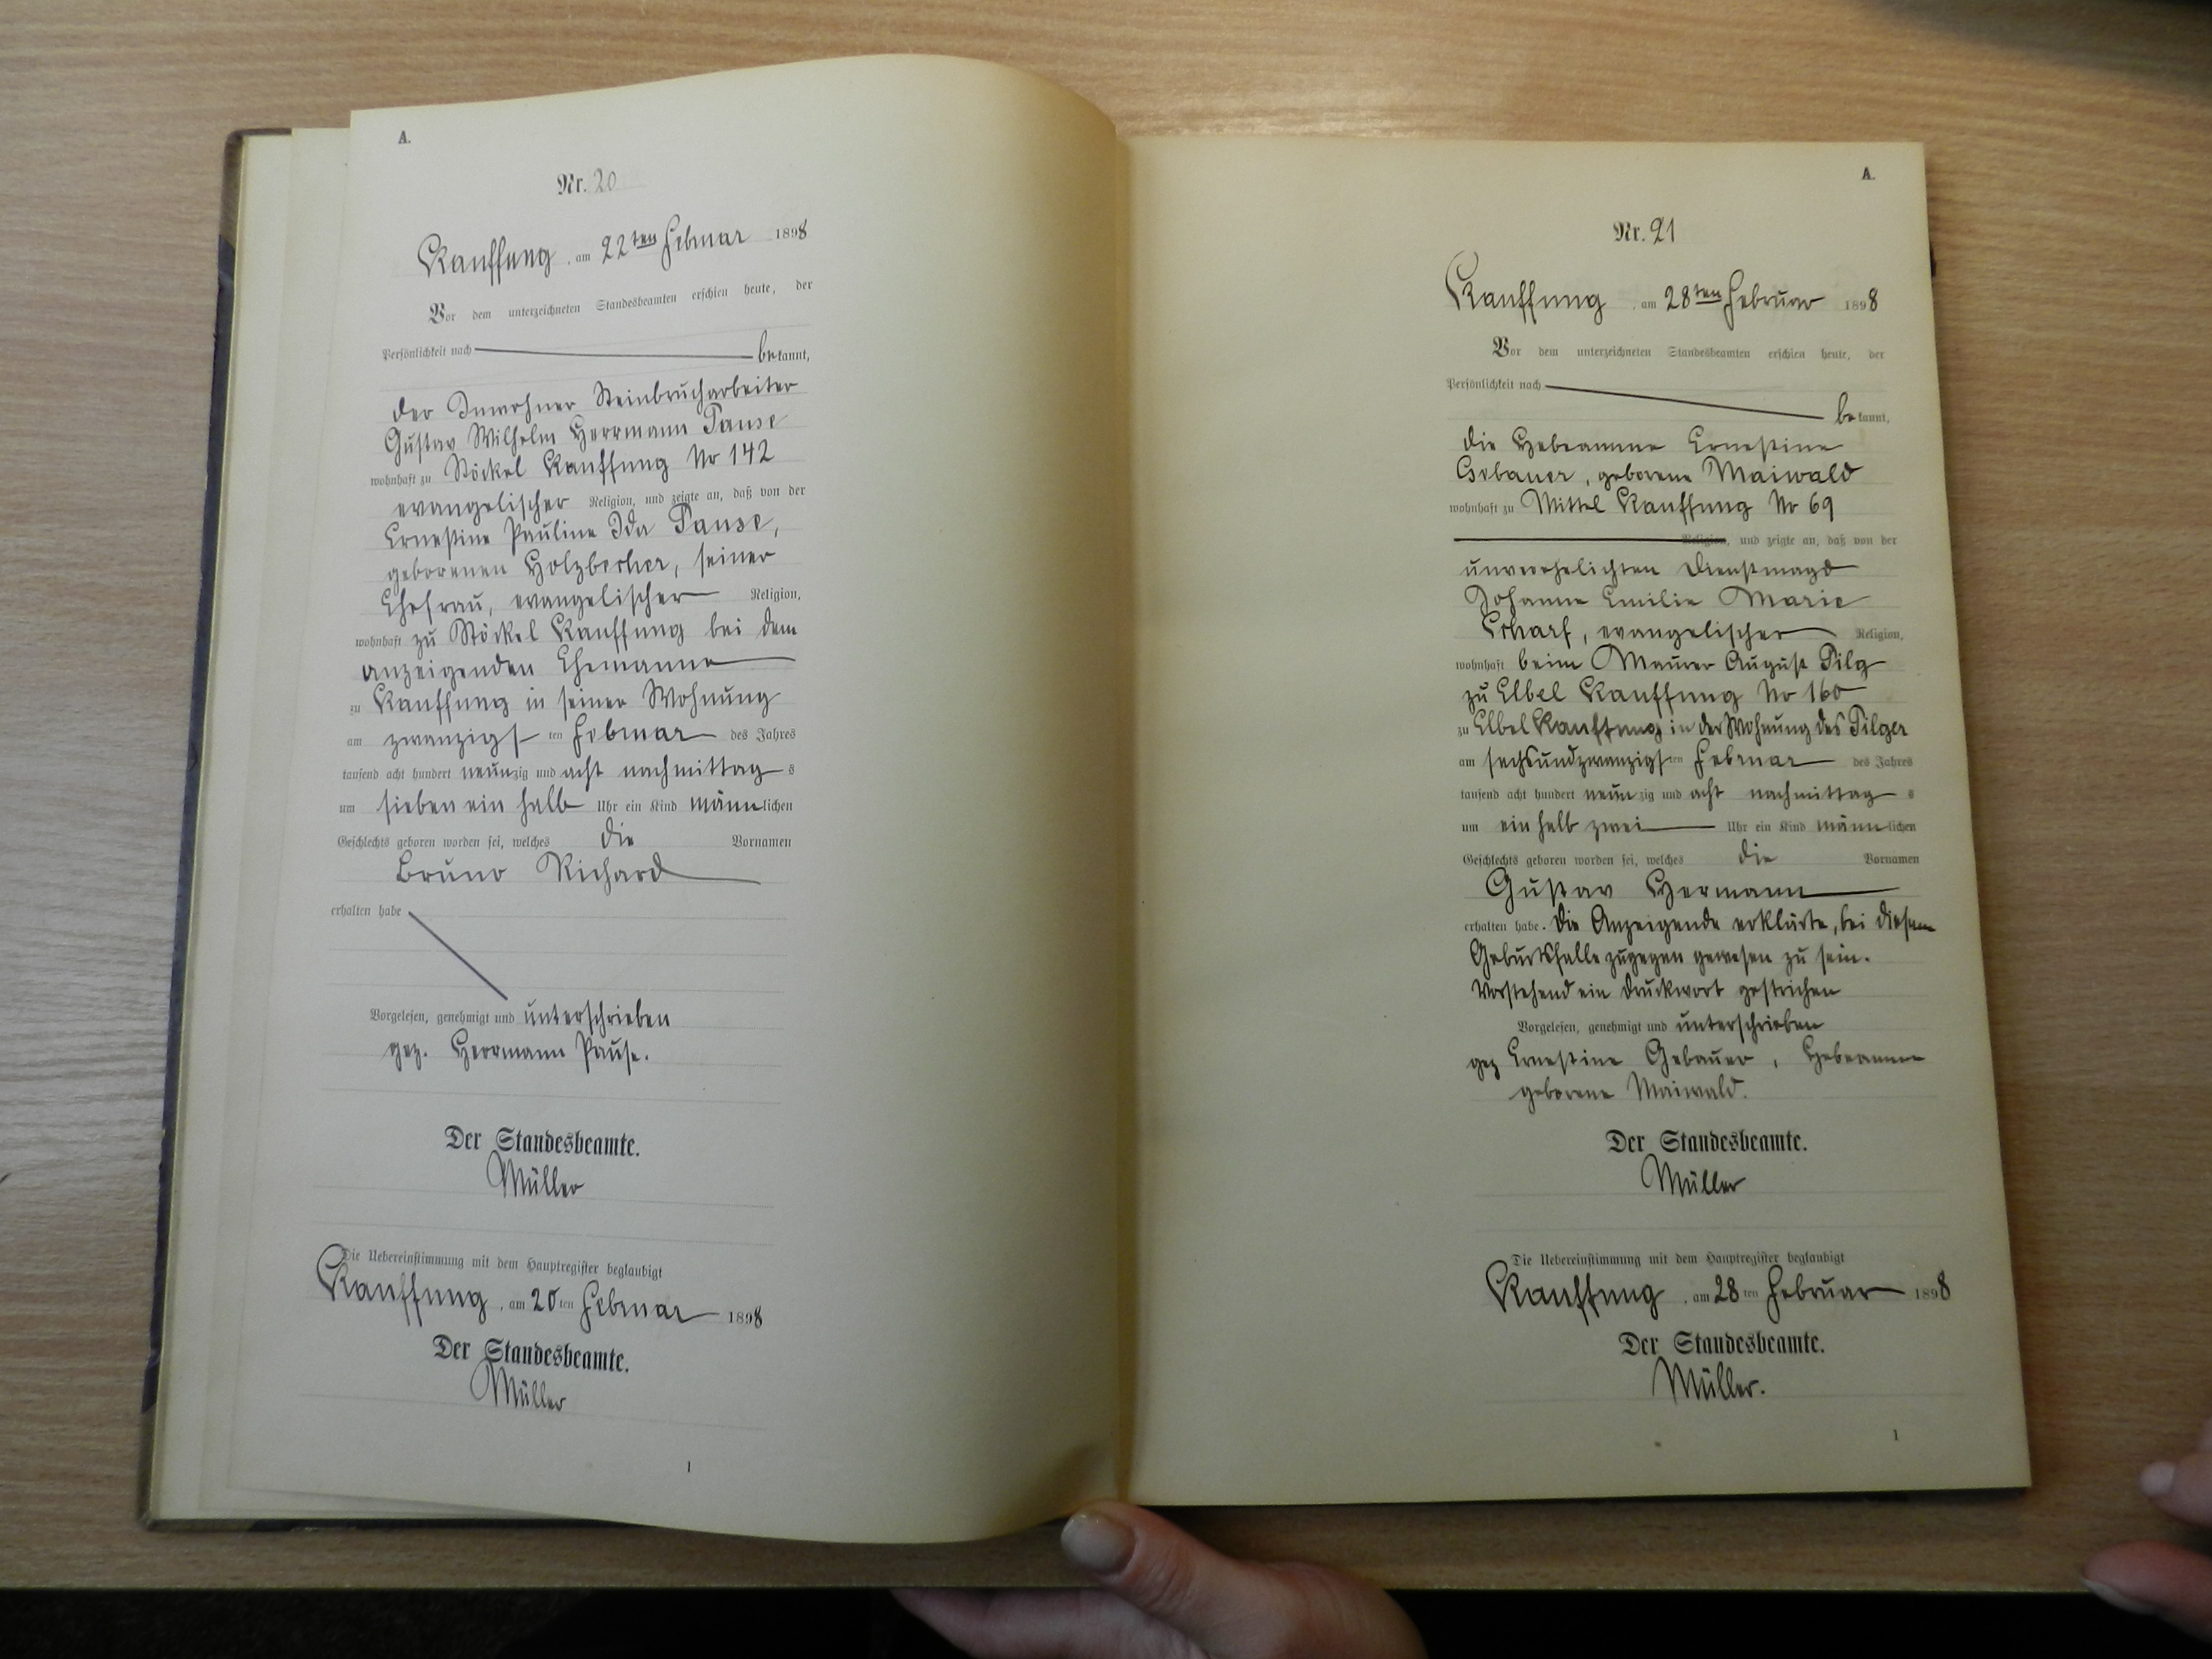 A.
Nr. 20
Kauffung, am 22ten Februar 1898
Vor dem unterzeichneten Standesbeamten erschien heute, der
Persönlichkeit nach bekannt,
der Inwohner Steinbrucharbeiter
Gustav Wilhelm Herrmann Pause
wohnhaft zu Stöckel Kauffung No 142
evangelischer Religion, und zeigte an, daß von der
Ernestine Pauline Ida Pause,
geborenen Holzbecher, seiner
Ehefrau, evangelischer Religion,
wohnhaft zu Stöckel Kauffung bei dem
anzeigenden Ehemanne
zu Kauffung in seiner Wohnung
am zwanzigsten Februar des Jahres
tausend acht hundert neunzig und acht nachmittags
um sieben ein halb Uhr ein Kind männlichen
Geschlechts geboren worden sei, welches die Vornamen
Bruno Richard
erhalten habe
Vorgelesen, genehmigt und unterschrieben
gez. Herrmann Pause.
Der Standesbeamte.
Müller
Die Uebereinstimmung mit dem Hauptregister beglaubigt
Kauffung, am 20ten Februar 1898
Der Standesbeamte.
Müller
1
A.
Nr. 21
Kauffung, am 28ten Februar 1898
Vor dem unterzeichneten Standesbeamten erschien heute, der
Persönlichkeit nach
bekannt,
die Hebeamme Ernestine
Gebauer, geborene Maiwald
wohnhaft zu Mittel Kauffung No 69
Religion, und zeigte an, daß von der
unverehelichten Dienstmagd
Johanne Emilie Marie
Scharf, evangelischer Religion,
wohnhaft beim Maurer August Pilg
zu Elbel Kauffung No 160
zu Elbel Kauffung in der Wohnung des Pilger
am sechsundzwanzigsten Februar des Jahres
tausend acht hundert neunzig und acht nachmittags
um ein halb zwei Uhr ein Kind männlichen
Geschlechts geboren worden sei, welches die Vornamen
Gustav Hermann
erhalten habe. Die Anzeigende erklärte, bei diesem
Geburtsfalle zugegen gewesen zu sein.
Vorstehend ein Druckwort gestrichen
Vorgelesen, genehmigt und unterschrieben
gez Ernestine Gebauer, Hebeamme
geborene Maiwald.
Der Standesbeamte.
Müller
Die Uebereinstimmung mit dem Hauptregister beglaubigt
Kauffung, am 28ten Februar 1898
Der Standesbeamte.
Müller.
1